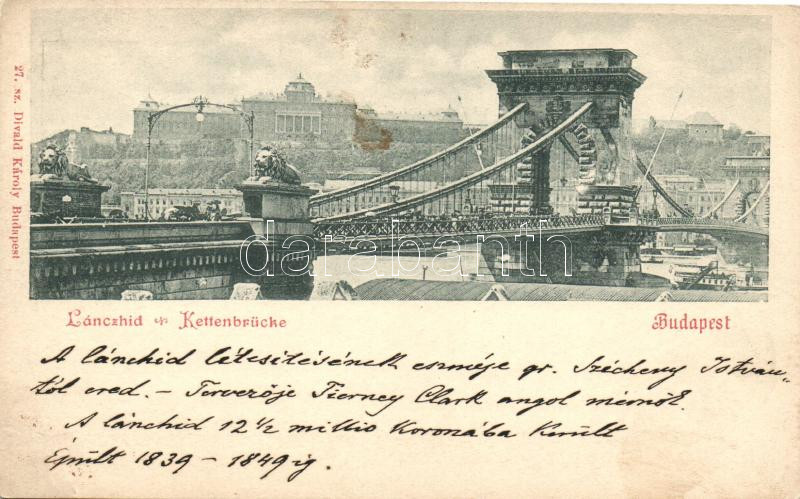 27. sz. Divald Károly Budapest
darabanth
Lánczhid Kettenbrücke
Budapest
A lánchid létesitésének eszméje gr. Szécheny István-
tól ered. - Tervezője Tierney Clark angol mérnök.
A lánchid 12 1/2 millio Koronába Került
Épült 1839 - 1849 ig.